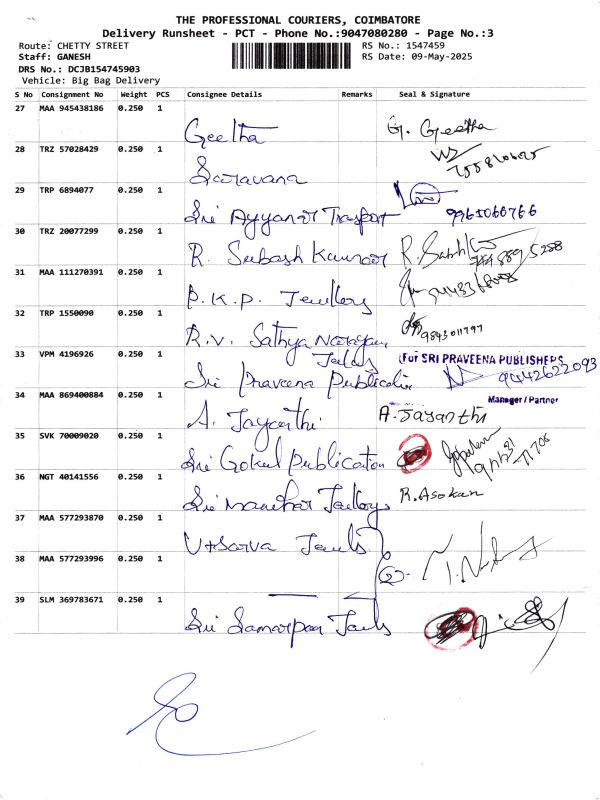 THE PROFESSIONAL COURIERS, COIMBATORE
Delivery Runsheet - PCT - Phone No.:9047080280 - Page No.:3
Route: CHETTY STREET
Staff: GANESH
DRS No.: DCJB154745903
Vehicle: Big Bag Delivery
RS No.: 1547459
RS Date: 09-May-2025
S No Consignment No Weight PCS Consignee Details Remarks Seal & Signature
27 MAA 945438186 0.250 1 Geetha G. Geetha
28 TRZ 57028429 0.250 1 Saravana
29 TRP 6894077 0.250 1 Sri Ayyanar Trasport
30 TRZ 20077299 0.250 1 R. Subash Kumar
31 MAA 111270391 0.250 1 P.K.P. Jewllery
32 TRP 1550090 0.250 1 R.V. Sathya Narayan 9843011797
33 VPM 4196926 0.250 1 Sri Praveena Publication For SRI PRAVEENA PUBLISHERS
9442622093
Manager / Partner
34 MAA 869400884 0.250 1 A. Jayanthi A. Jayanthi
35 SVK 70009020 0.250 1 Sri Gokul Publication
36 NGT 40141556 0.250 1 Sri Manohar Jewllery R. Asokan
37 MAA 577293870 0.250 1 Utsarva Jewls
38 MAA 577293996 0.250 1 (2)
39 SLM 369783671 0.250 1 Sri Samarpan Jewls